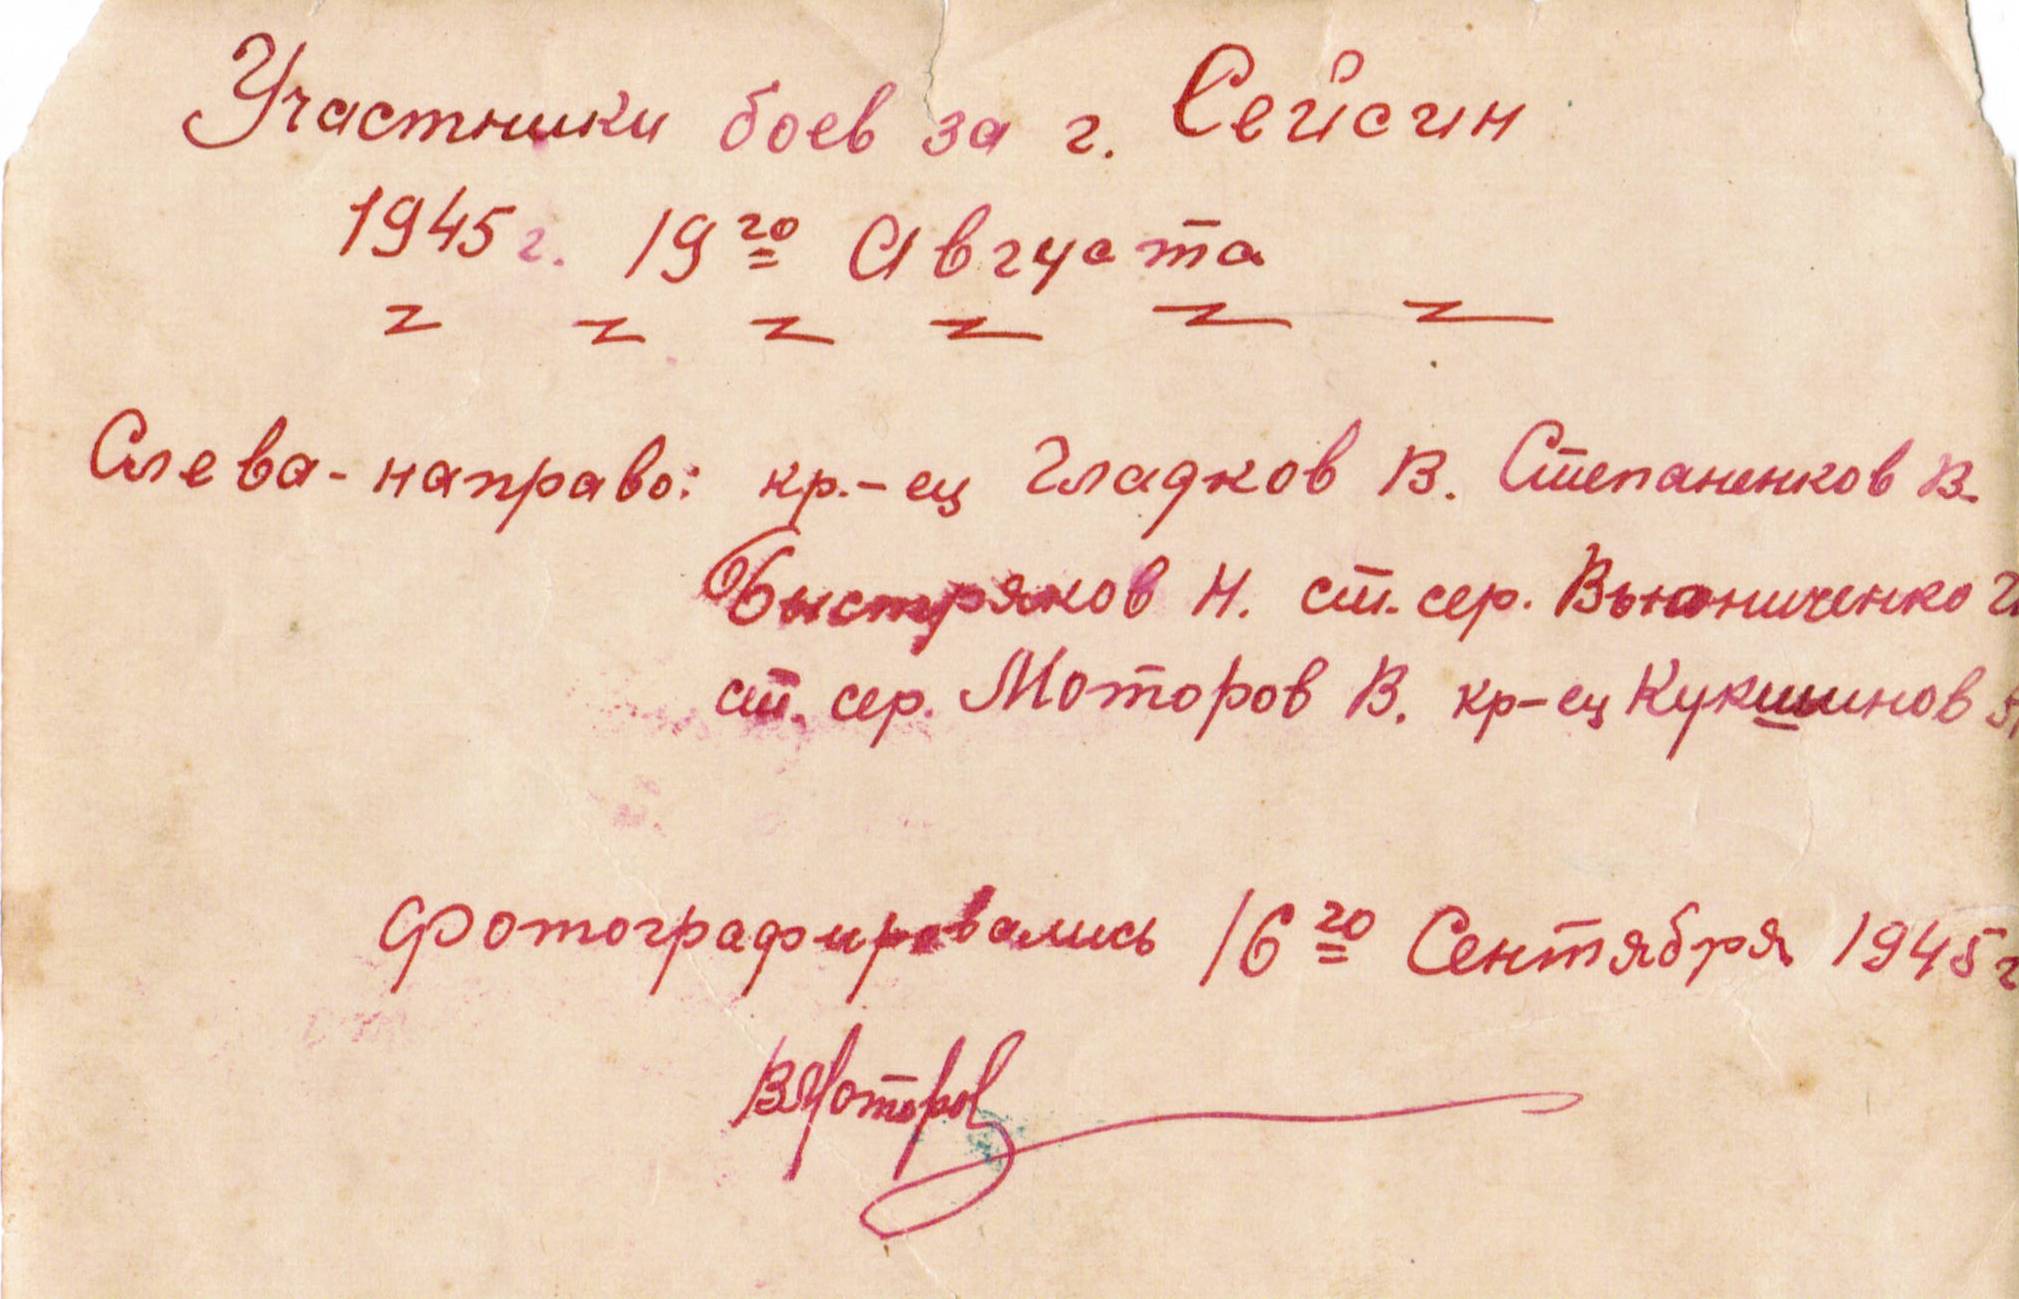 Участники боев за г. Сейсин
1945 г. 19го Августа
Слева-направо: кр.-ец Гладков В. Степаненков В.
Быстряков Н. ст. сер. Вьюниченко
ст. сер. Моторов В. кр-ец Кукшинов
Фотографировались 16го Сентября 1945 г
ВМоторов